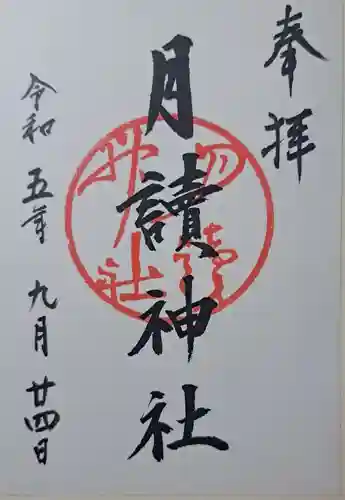 奉拝
月讀神社
令和五年九月廿四日